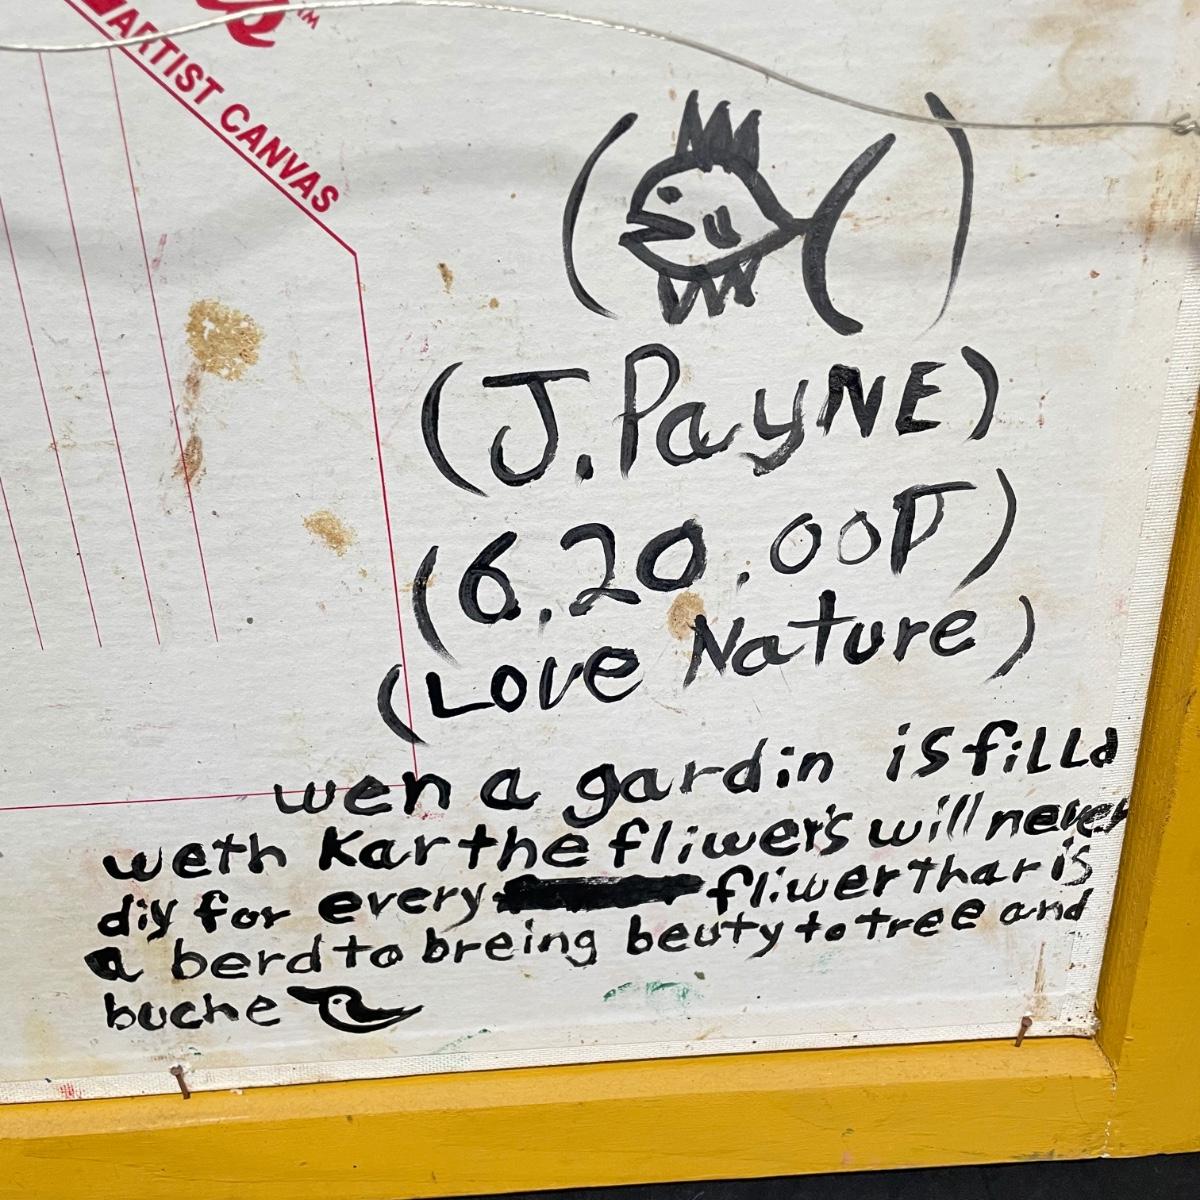 ARTIST CANVAS
(J. PayNE)
(6.20.00P)
(Love Nature)
wen a gardin is filld
weth Kar the fliwers will never
diy for every fliwer thar is
a berd to breing beuty to tree and
buche